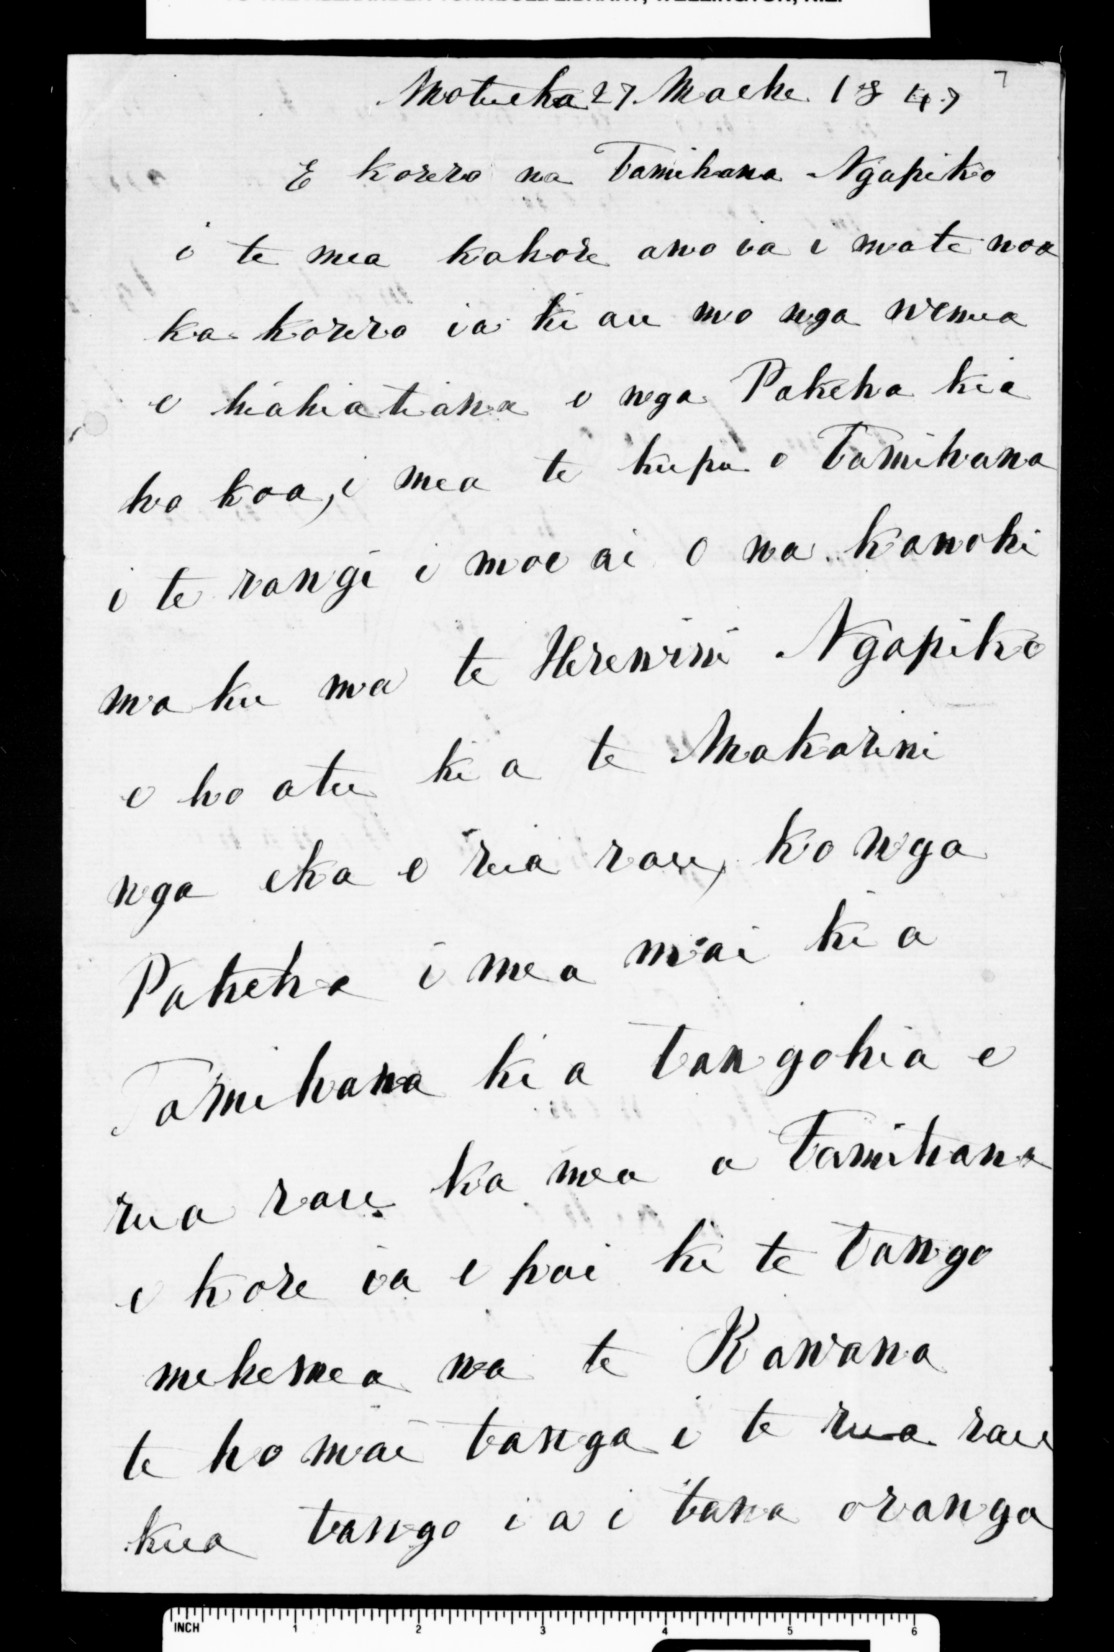 7
Motueka 27 Maehe 1847
E korero na Tamihana Ngapiko
i te mea kahore ano ia i mate noa
ka korero ia ki au mo nga wenua
e hiahiatiana e nga Pakeha kia
ho koa, i mea te kupu o Tamihana
i te rangi i moe ai o na kanohi
maku ma te Herewini Ngapiko
e ho atu ki a te Makarini
nga eka e rua rau, ko nga
Pakeha i mea mai ki a
Tamihana ki a tangohia e
rua rau ka mea a Tamihana
e kore ia e pai ki te tango
mehemea na te Kawana
te ho mai tanga i te rua rau
kua tango ia i tana oranga
INCH 1 2 3 4 5 6